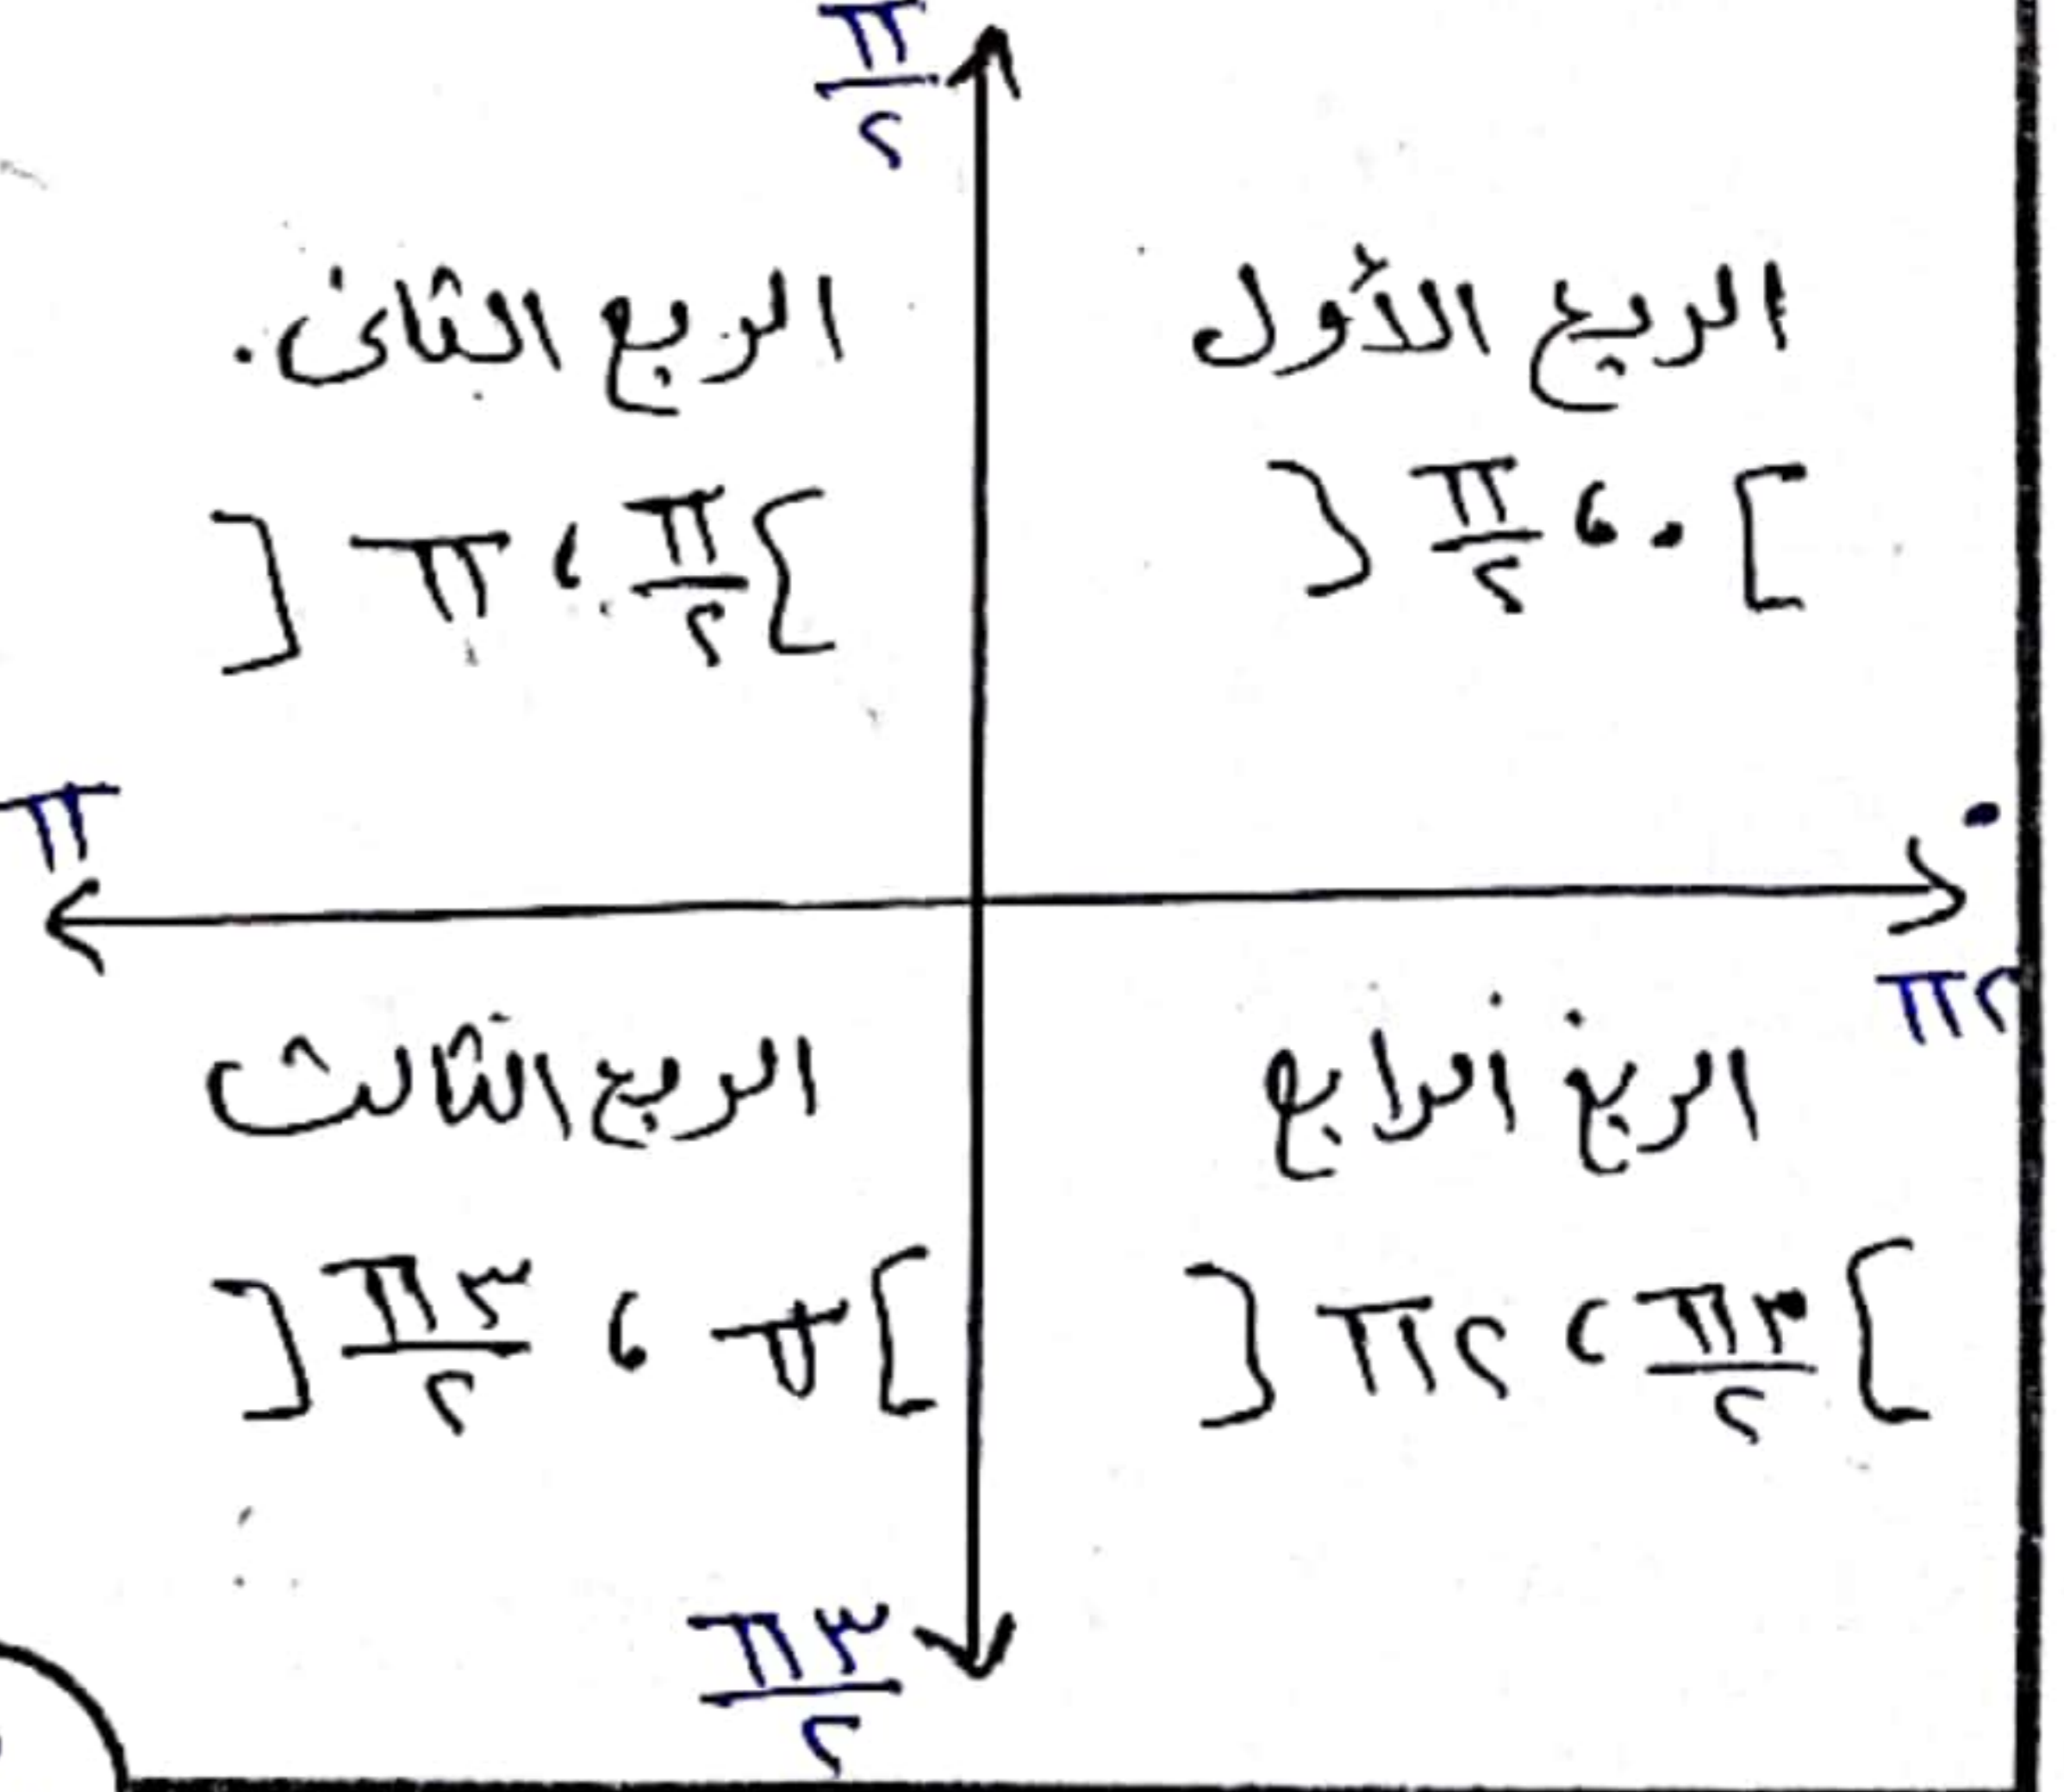 π/٢
الربع الأول
[٠ ، π/٢]
الربع الثانى.
[π/٢ ، π]
π
٠
٢π
الربع الرابع
[٣π/٢ ، ٢π]
الربع الثالث
[π ، ٣π/٢]
٣π/٢